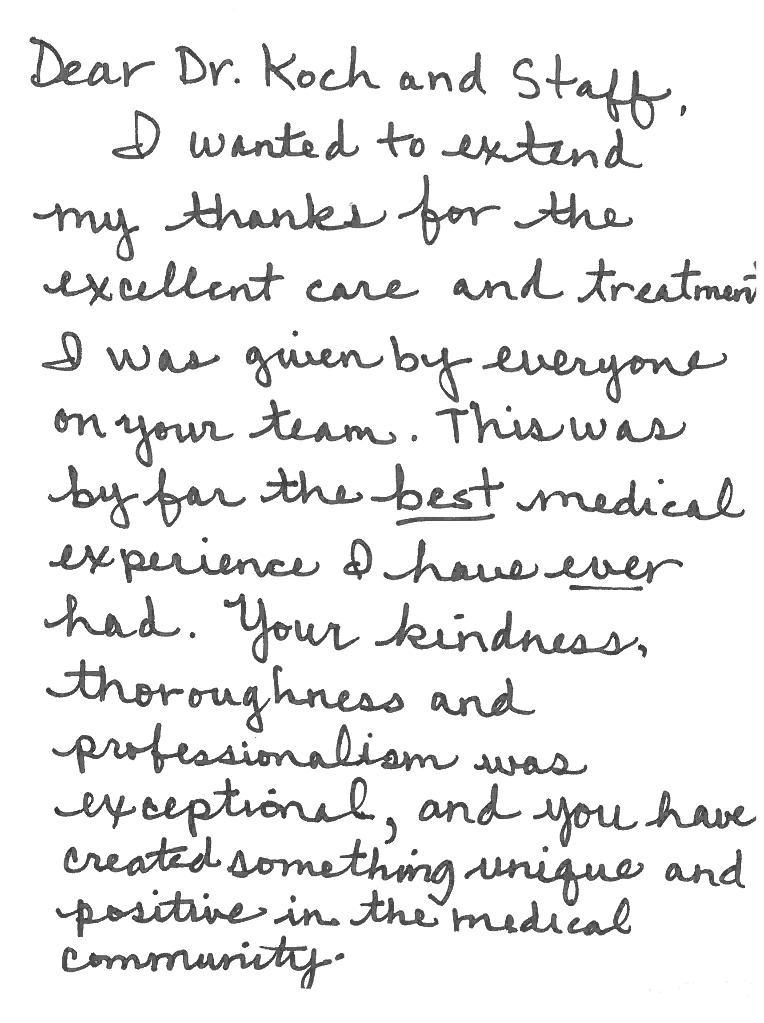 Dear Dr. Koch and Staff,
I wanted to extend
my thanks for the
excellent care and treatment
I was given by everyone
on your team. This was
by far the best medical
experience I have ever
had. Your kindness,
thoroughness and
professionalism was
exceptional, and you have
created something unique and
positive in the medical
community.